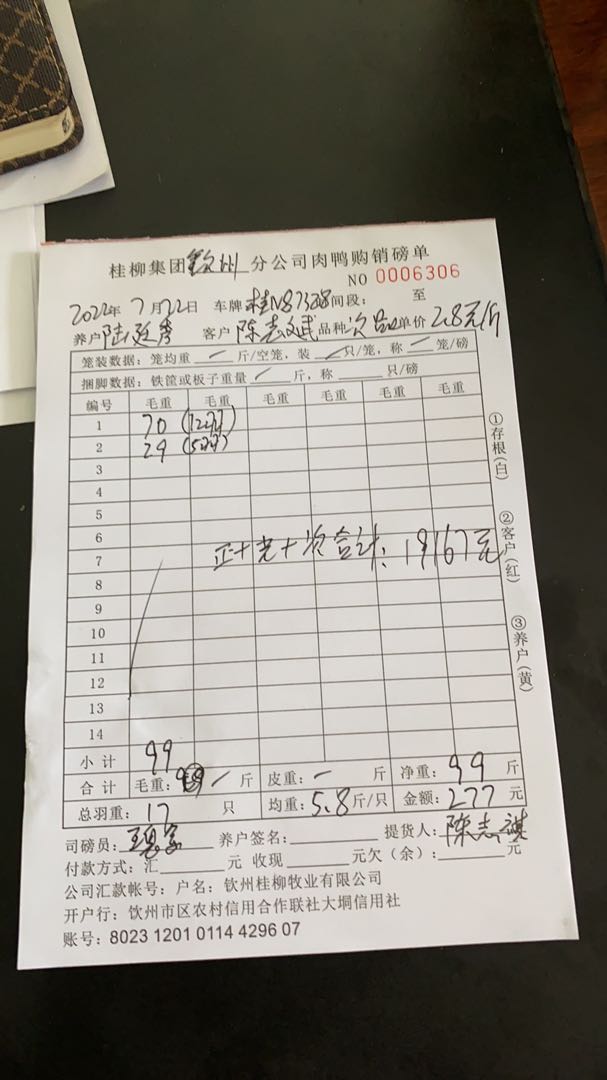 桂柳集团钦州分公司肉鸭购销磅单
NO 0006306
2022年7月22日 车牌 桂N87328 间段: 至
养户 陆廷 客户 陈志斌 品种 次品 单价 2.8元/斤
笼装数据: 笼均重 — 斤/空笼, 装 — 只/笼, 称 — 笼/磅
捆脚数据: 铁筐或板子重量 — 斤, 称 只/磅
编号 毛重 毛重 毛重 毛重 毛重 毛重
1 70 (12只)
2 29 (5只)
3
4
5
6
7 正+光+次合计: 19167元
8
9
10
11
12
13
14
小计 99
合计 毛重: — 斤 皮重: — 斤 净重: 99 斤
总羽重: 17 只 均重: 5.8 斤/只 金额: 277 元
司磅员: 养户签名: 提货人: 陈志斌
付款方式: 汇 元 收现 元欠(余): 元
公司汇款帐号: 户名: 钦州桂柳牧业有限公司
开户行: 钦州市区农村信用合作联社大垌信用社
账号: 8023 1201 0114 4296 07
①存根(白)
②客户(红)
③养户(黄)